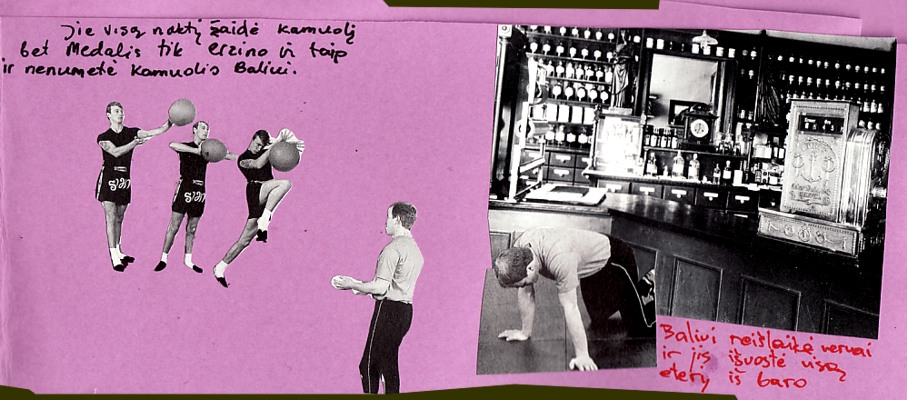 Jie visą naktį žaidė kamuolį
bet Medalis tik erzino vis taip
ir nenumetė kamuolio Baliui.
Baliui neišlaikė nervai
ir jis išuostė visą
eterį iš baro